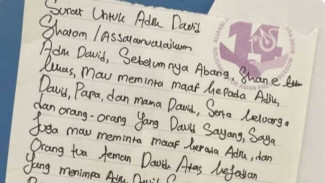 Surat Untuk Adik David
Shalom / Assalamualaikum
Adik David, Sebelumnya Abang, Shane
Lukas, Mau meminta maaf kepada Adik,
David, Papa, dan mama David, Serta keluarga
dan orang-orang Yang David Sayang, Saya
Juga mau meminta maaf kepada Adik, dan
Orang tua teman David Atas kejadian
Yang menimpa Adik David